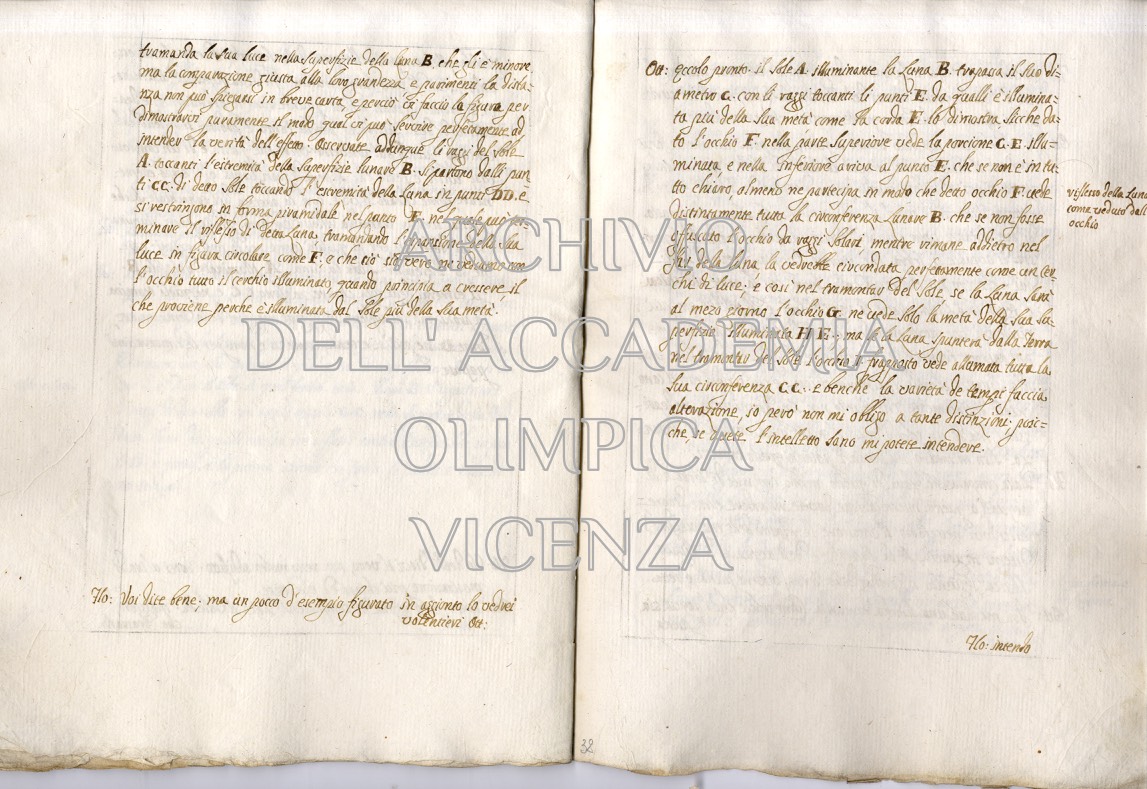 tramanda la sua luce nella superfizie della Luna B che gli è minore,
ma la comparazione giusta alla loro grandezza, e parimenti la dista=
nza non può spiegarsi in breve carta, e perciò vi faccio la figura per
dimostrarvi puramente il modo qual vi può servire perfetamente ad
intender la verità dell'effetto. Osservate addunque li raggi del Sole
A. toccanti l'estremità della superfizie lunare B. si partono dalli pun
ti C.C. di detto Sole toccando l'estremità della Luna in punti DD. e
si restringono in forma piramidale nel punto E. nel quale può ter=
minare il riflesso di detta Luna, tramandando l'espansione della sua
luce in figura circolare come F, e che ciò sia vero ne vediamo con
l'occhio tutto il cerchio illuminato, quando principia a crescere, il
che proviene perche è illuminata dal Sole più della sua metà.
Flo: Voi dite bene; ma un pocco d'esempio figurato in aggionto lo vedrei
volentieri Ott:
Ott: Eccolo pronto. il Sole A. illuminante la Luna B. trapassa il suo di=
ametro C. con li raggi toccanti li punti E. da qualli è illumina=
ta più della sua metà come la corda E. lo dimostra, sicche da=
to l'occhio F. nella parte superiore vede la porcione C.E. illu=
minata, e nella inferiore ariva al punto E. che se non è in tu=
tto chiaro, almeno ne partecipa in modo che detto occhio F. vede
distintamente tutta la circonferenza Lunare B. che se non fosse
offuscato l'occhio da raggi Solari, mentre rimane addietro nel
giro della Luna, la vedrebbe circondata perfettamente come un cer=
chi di luce; e così nel tramontar del Sole, se la Luna sarà
al mezo giorno l'occhio G. ne vede solo la metà della sua su=
perfizie illuminata H E. ma se la luna spunterà dalla terra
nel tramontar del Sole l'occhio I. frapposto vede allumata tutta la
sua circonferenza C.C. e benche la varietà de tempi faccia
alterazione, io però non mi obligo a tante distinzioni; posc=
che, se avete l'intelletto sano mi potete intendere.
riflesso della Luna
come veduto dal
occhio
Flo: intendo
32
ARCHIVIO
DELL'ACCADEMIA
OLIMPICA
VICENZA